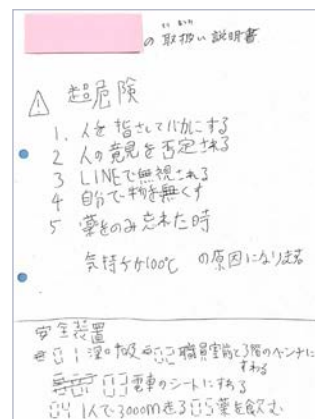 の取扱い説明書
⚠ 超危険
1. 人を指さしてバカにする
2 人の意見を否定される
3 LINEで無視される
4 自分で物を無くす
5 薬をのみ忘れた時
気持ちが100℃ の原因になります
安全装置
01 深呼吸 02 職員室前と3階のベンチに
すわる
03 電車のシートにすわる
04 1人で3000m走る 05 薬を飲む